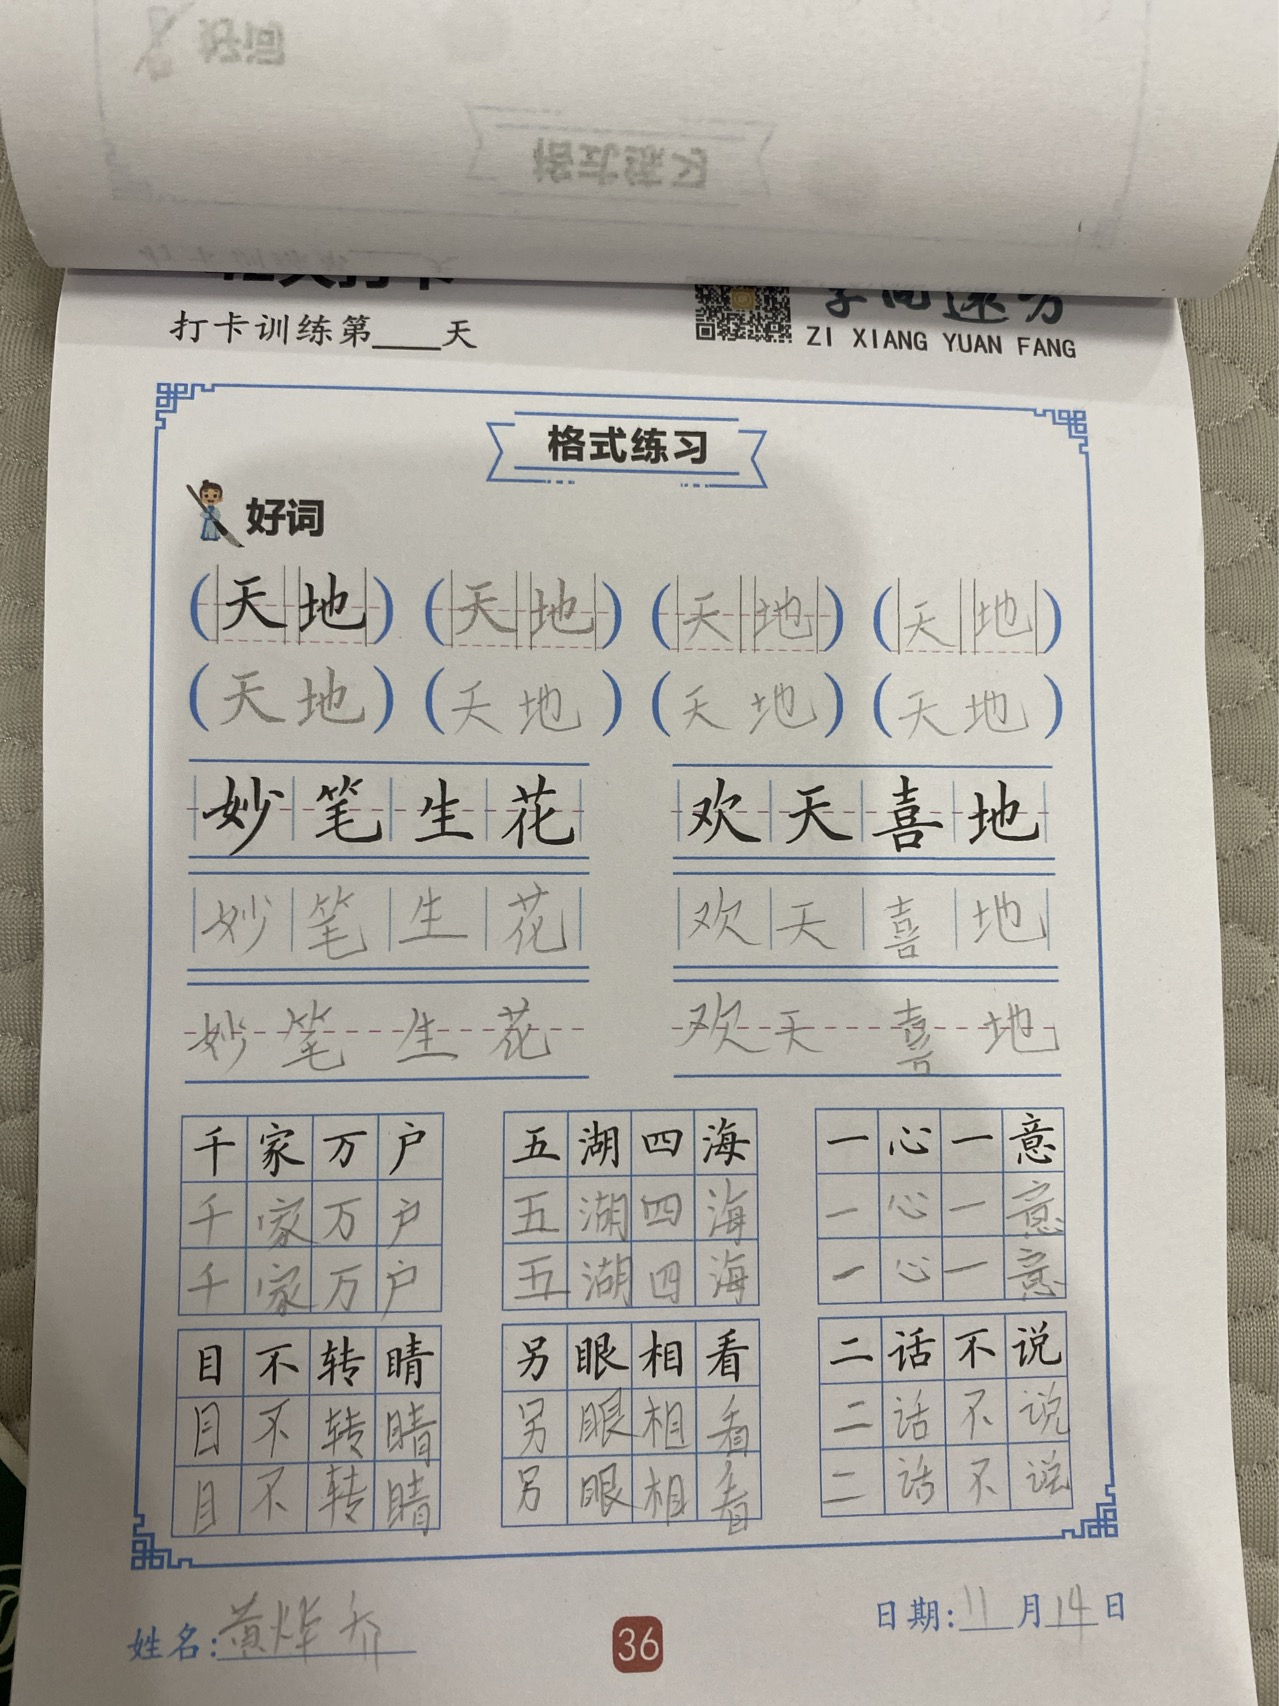 打卡训练第____天
ZI XIANG YUAN FANG
格式练习
好词
(天地) (天地) (天地) (天地)
(天地) (天地) (天地) (天地)
妙笔生花 欢天喜地
妙笔生花 欢天喜地
妙笔生花 欢天喜地
千家万户 五湖四海 一心一意
千家万户 五湖四海 一心一意
千家万户 五湖四海 一心一意
目不转睛 另眼相看 二话不说
目不转睛 另眼相看 二话不说
目不转睛 另眼相看 二话不说
姓名: 黄烨乔 日期: 11月14日
36